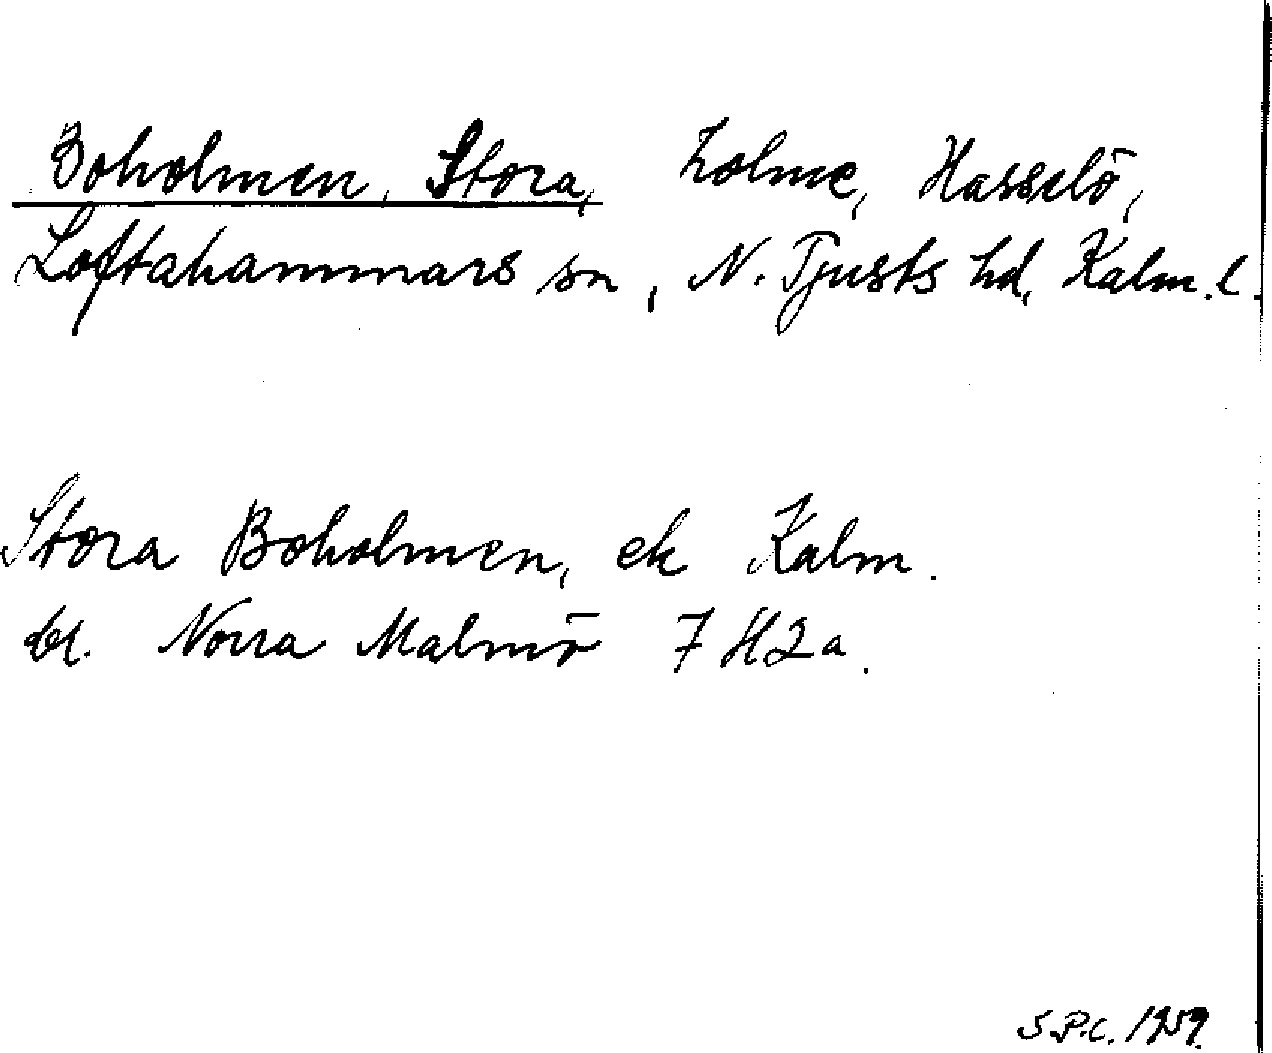 Boholmen, Stora, holme, Hasselö,
Loftahammars sn, N. Tjusts hd, Kalm. l.
Stora Boholmen, ek Kalm.
bl. Norra Malmö 7 H2a.
S.P.C. 1959.